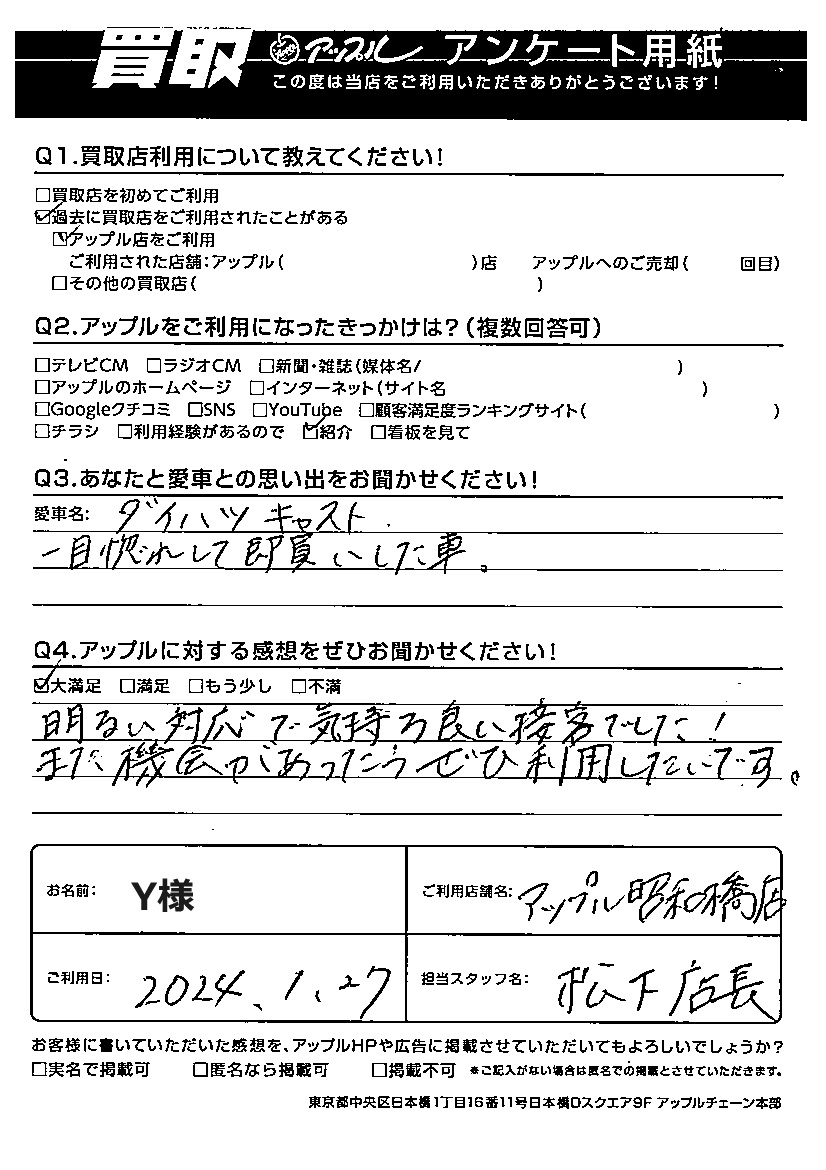 買取 アップル アンケート用紙
この度は当店をご利用いただきありがとうございます!
Q1.買取店利用について教えてください!
□買取店を初めてご利用
☑過去に買取店をご利用されたことがある
☑アップル店をご利用
ご利用された店舗:アップル( )店 アップルへのご売却( 回目)
□その他の買取店( )
Q2.アップルをご利用になったきっかけは?(複数回答可)
□テレビCM □ラジオCM □新聞・雑誌(媒体名/ )
□アップルのホームページ □インターネット(サイト名 )
□Googleクチコミ □SNS □YouTube □顧客満足度ランキングサイト( )
□チラシ □利用経験があるので ☑紹介 □看板を見て
Q3.あなたと愛車との思い出をお聞かせください!
愛車名: ダイハツ キャスト
一目惚れして即買いした車。
Q4.アップルに対する感想をぜひお聞かせください!
☑大満足 □満足 □もう少し □不満
明るい対応で気持ち良い接客でした!
また機会があったらぜひ利用したいです。
お名前: Y様 ご利用店舗名: アップル昭和橋店
ご利用日: 2024.1.27 担当スタッフ名: 松下店長
お客様に書いていただいた感想を、アップルHPや広告に掲載させていただいてもよろしいでしょうか?
□実名で掲載可 □匿名なら掲載可 □掲載不可 *ご記入がない場合は匿名での掲載とさせていただきます。
東京都中央区日本橋1丁目16番11号日本橋Dスクエア9F アップルチェーン本部